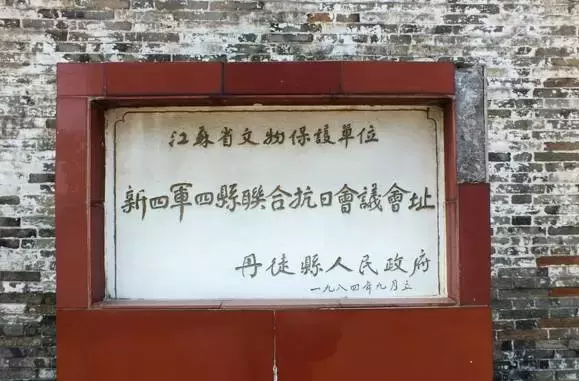 江蘇省文物保護單位
新四軍四縣聯合抗日會議會址
丹徒縣人民政府
一九八四年九月立